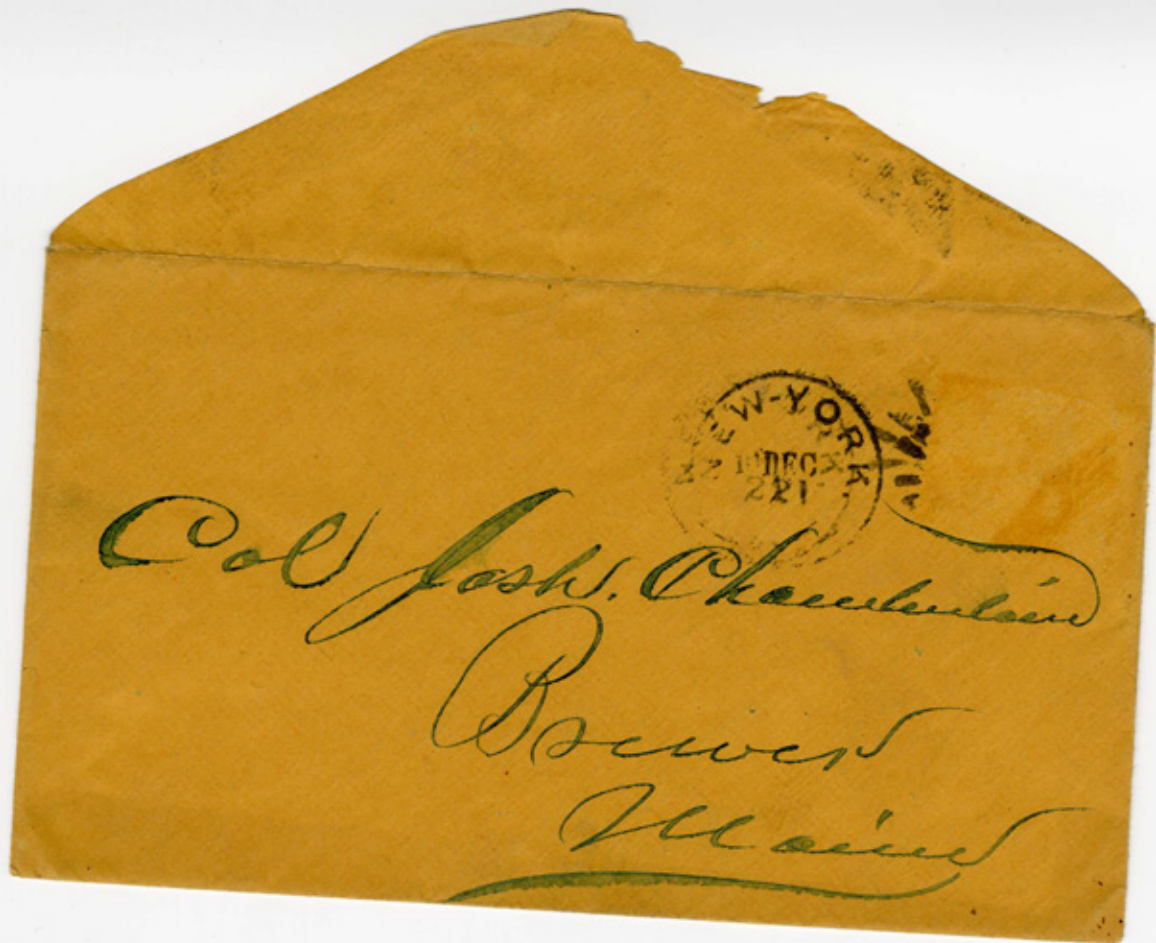 NEW-YORK
DEC
221
Col Josh. Chamberlain
Brewer
Maine